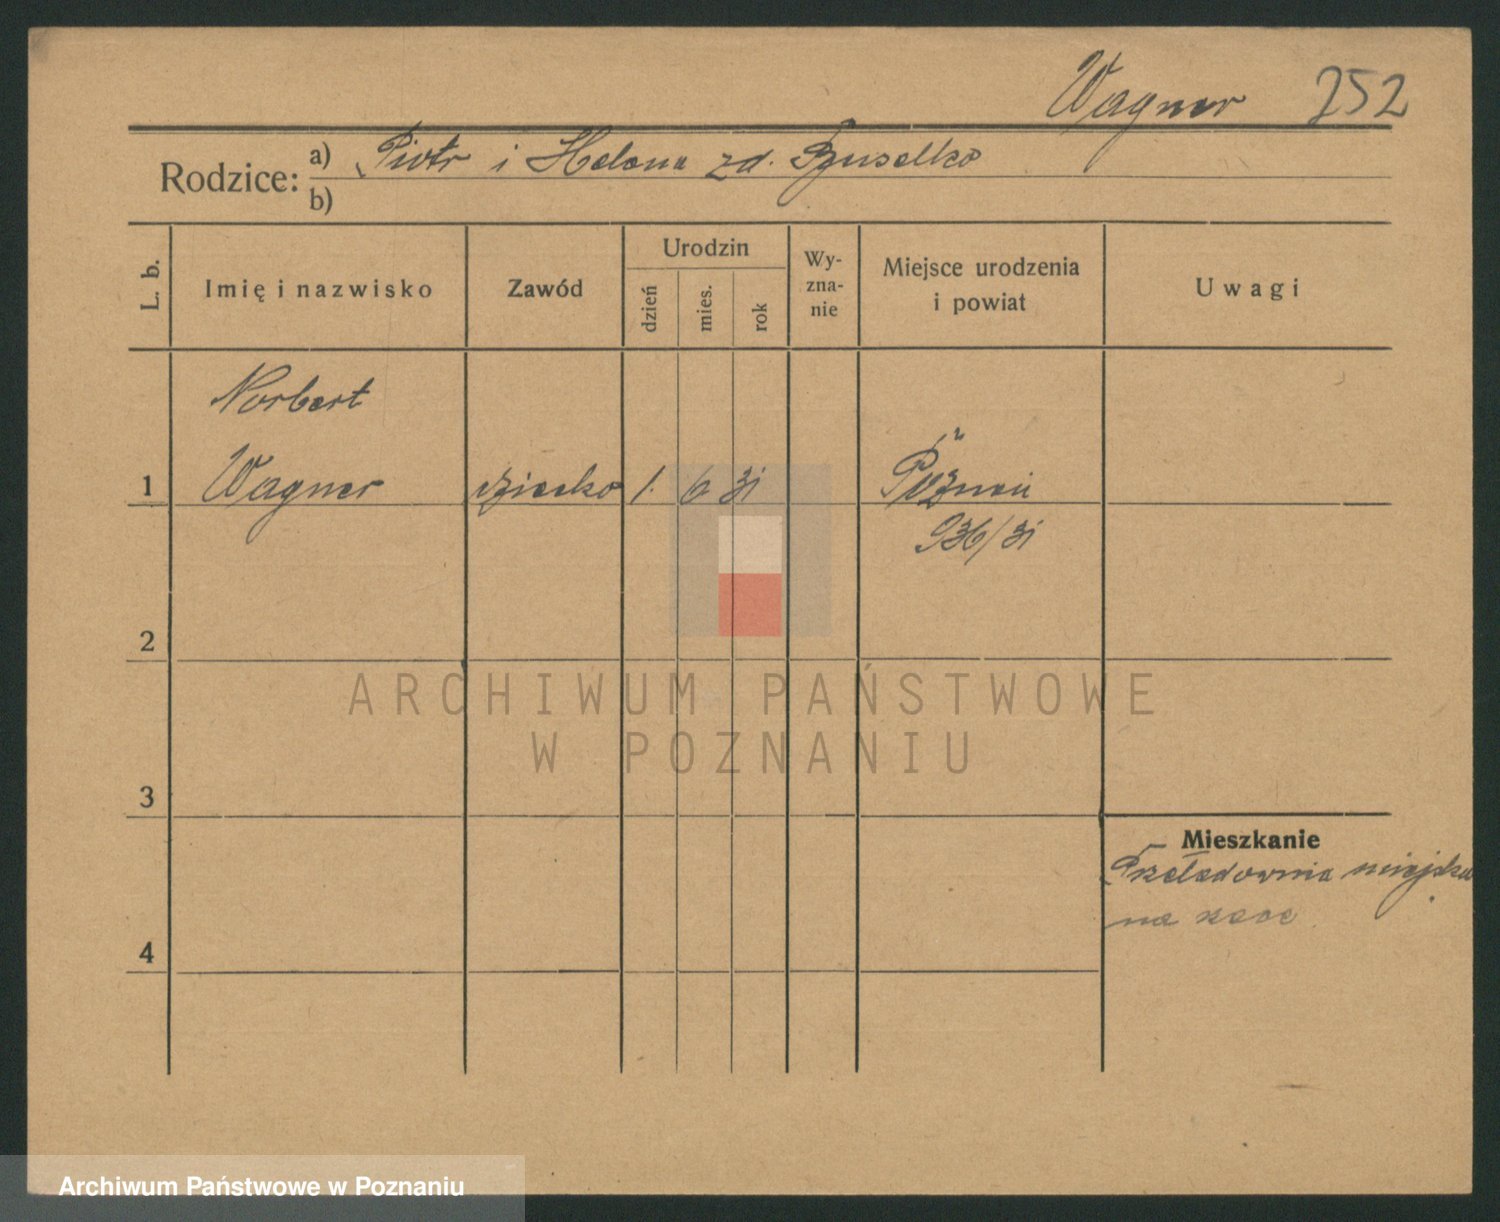 Wagner 252
Rodzice: a) Piotr i Helena zd.
b)
L. b.
Imię i nazwisko
Zawód
Urodzin
dzień
mies.
rok
Wy-
zna-
nie
Miejsce urodzenia
i powiat
Uwagi
Norbert
1 Wagner dziecko 1. 6 31 Poznań
936/31
2
3
4
Mieszkanie
miejska
na
ARCHIWUM PAŃSTWOWE
W POZNANIU
Archiwum Państwowe w Poznaniu